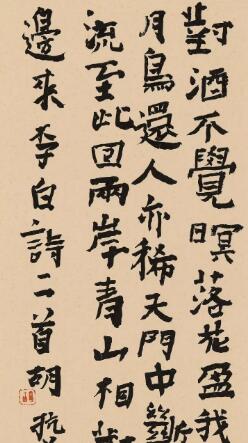 對酒不覺暝落花盈我
月鳥還人亦稀天門中斷
流至此回兩岸青山相對
邊來李白詩二首胡抗美